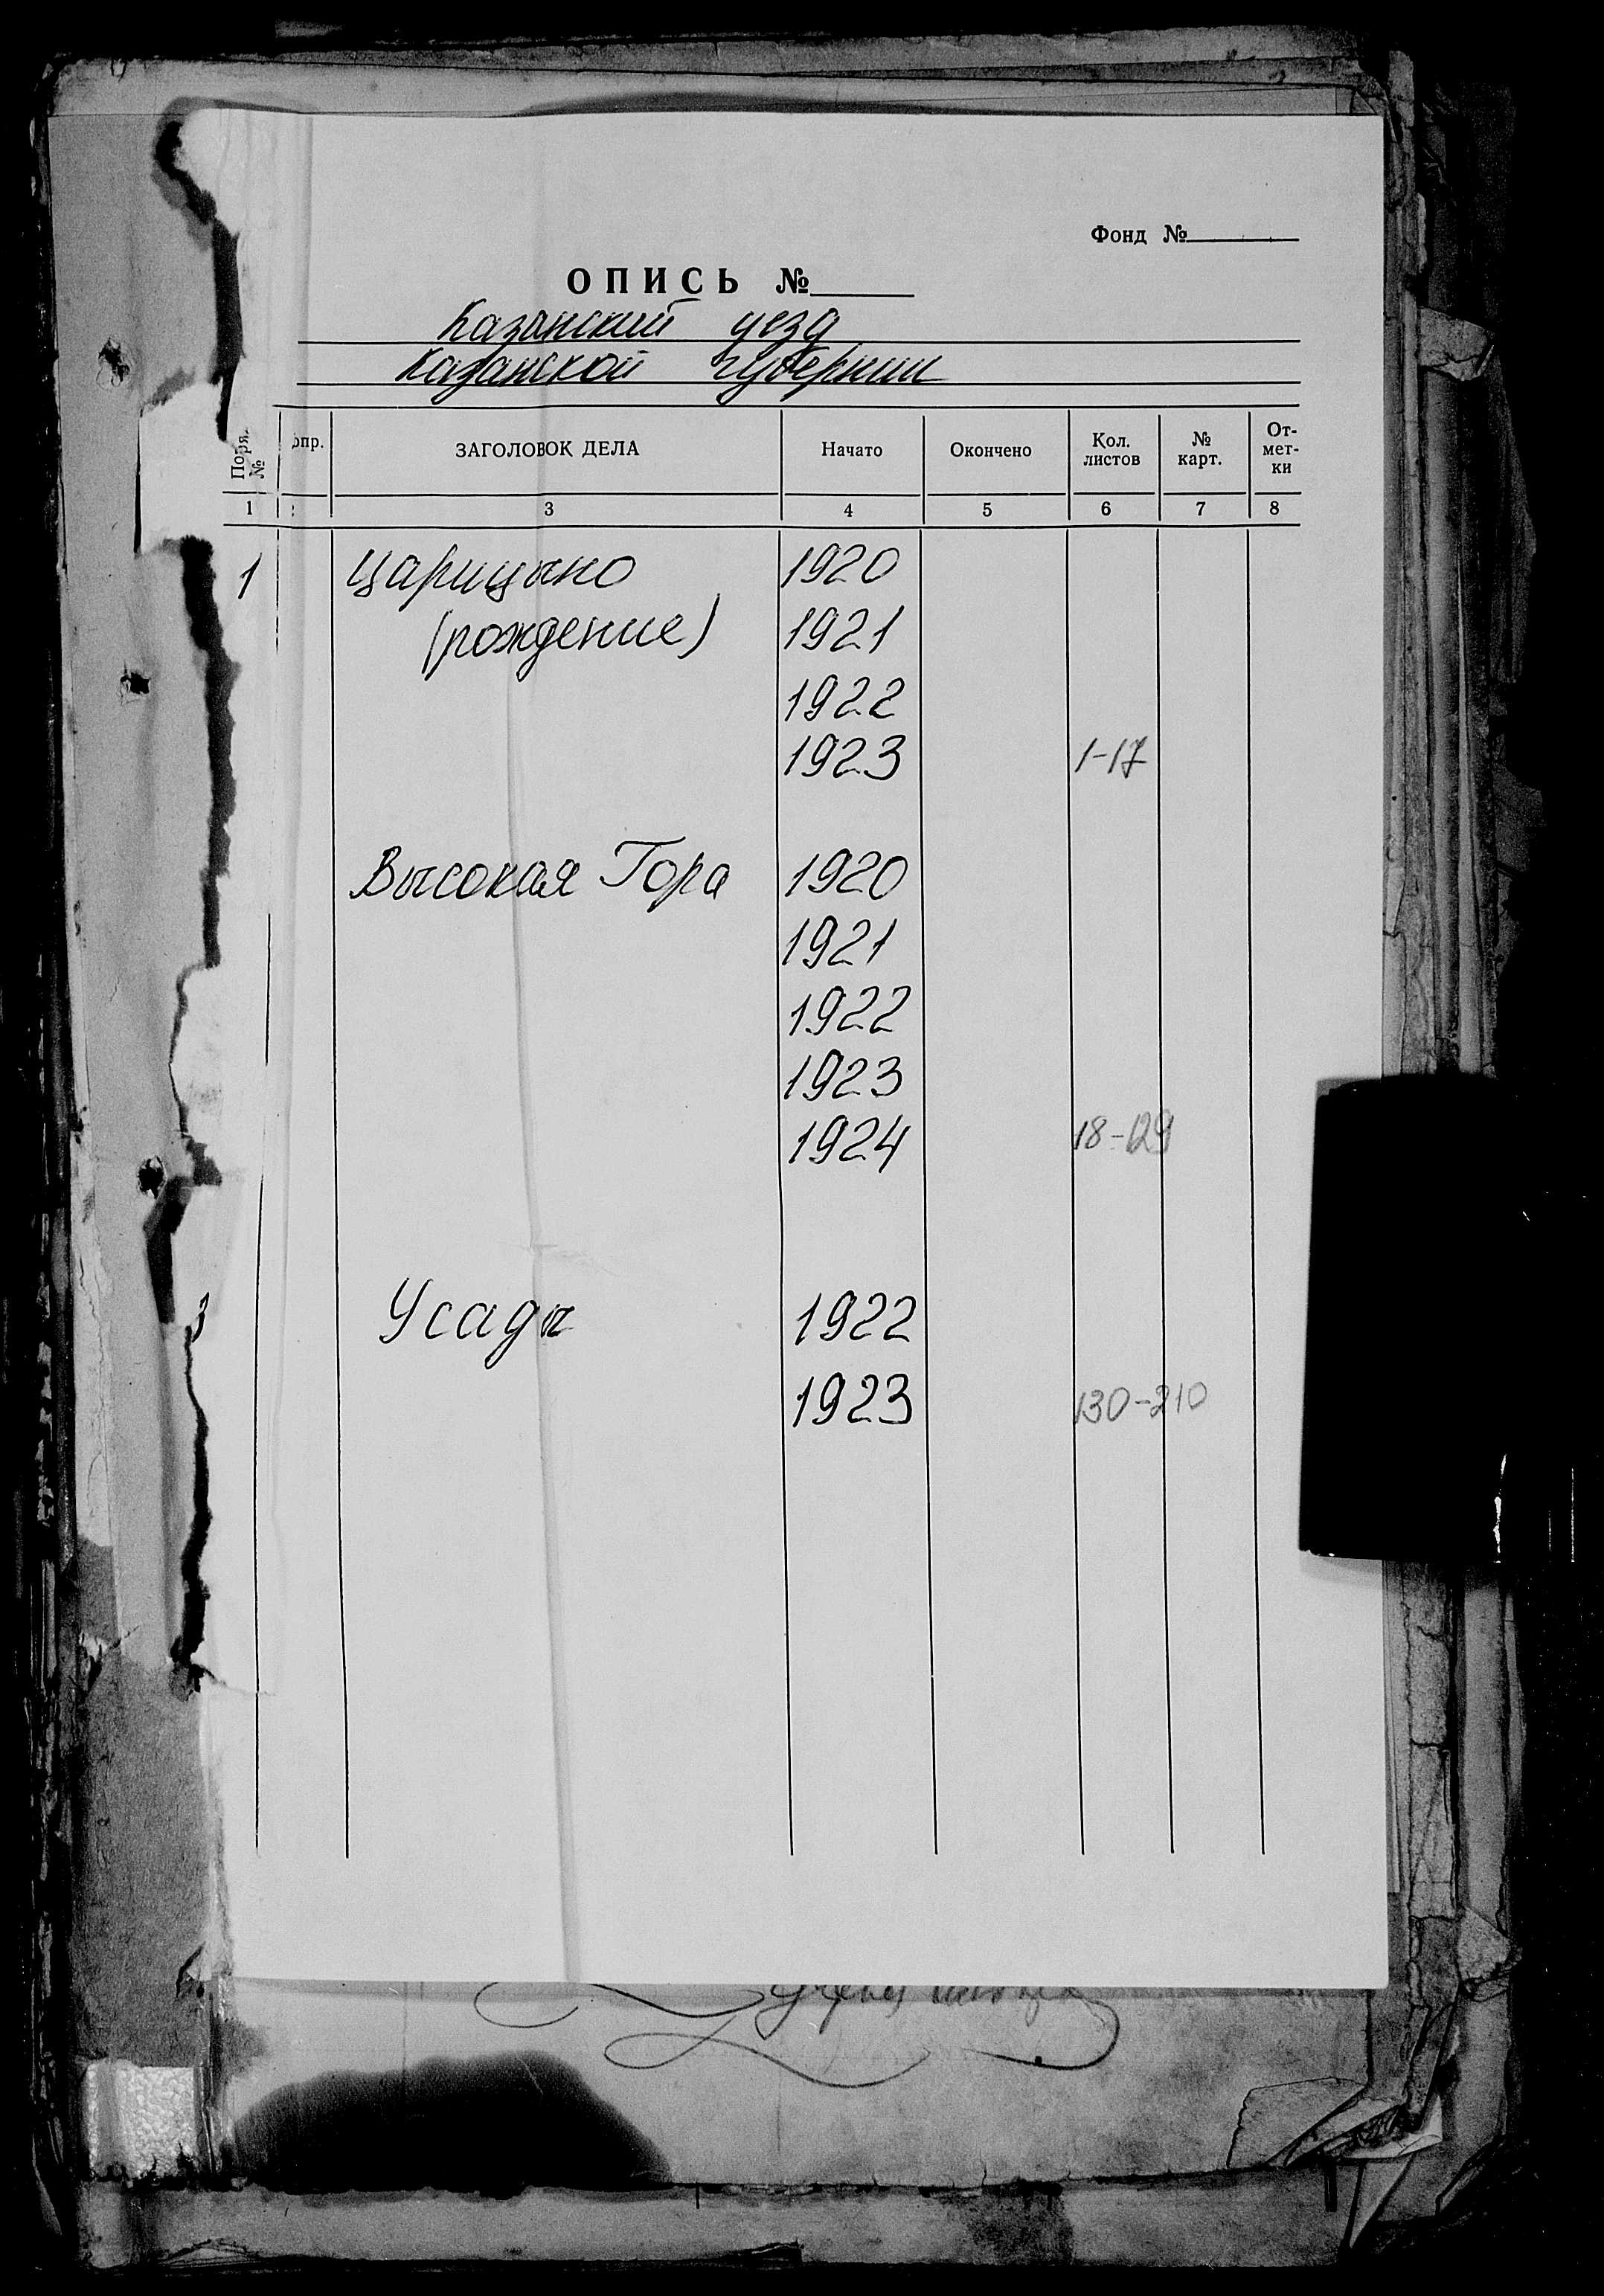 Фонд №
ОПИСЬ №
Казанский уезд
Казанской губернии
Поря. №
опр.
ЗАГОЛОВОК ДЕЛА
Начато
Окончено
Кол. листов
№ карт.
От-мет-ки
1 3 4 5 6 7 8
1 Царицыно 1920
(рождение) 1921
1922
1923 1-17
Высокая Гора 1920
1921
1922
1923
1924 18-129
3 Усады 1922
1923 130-210